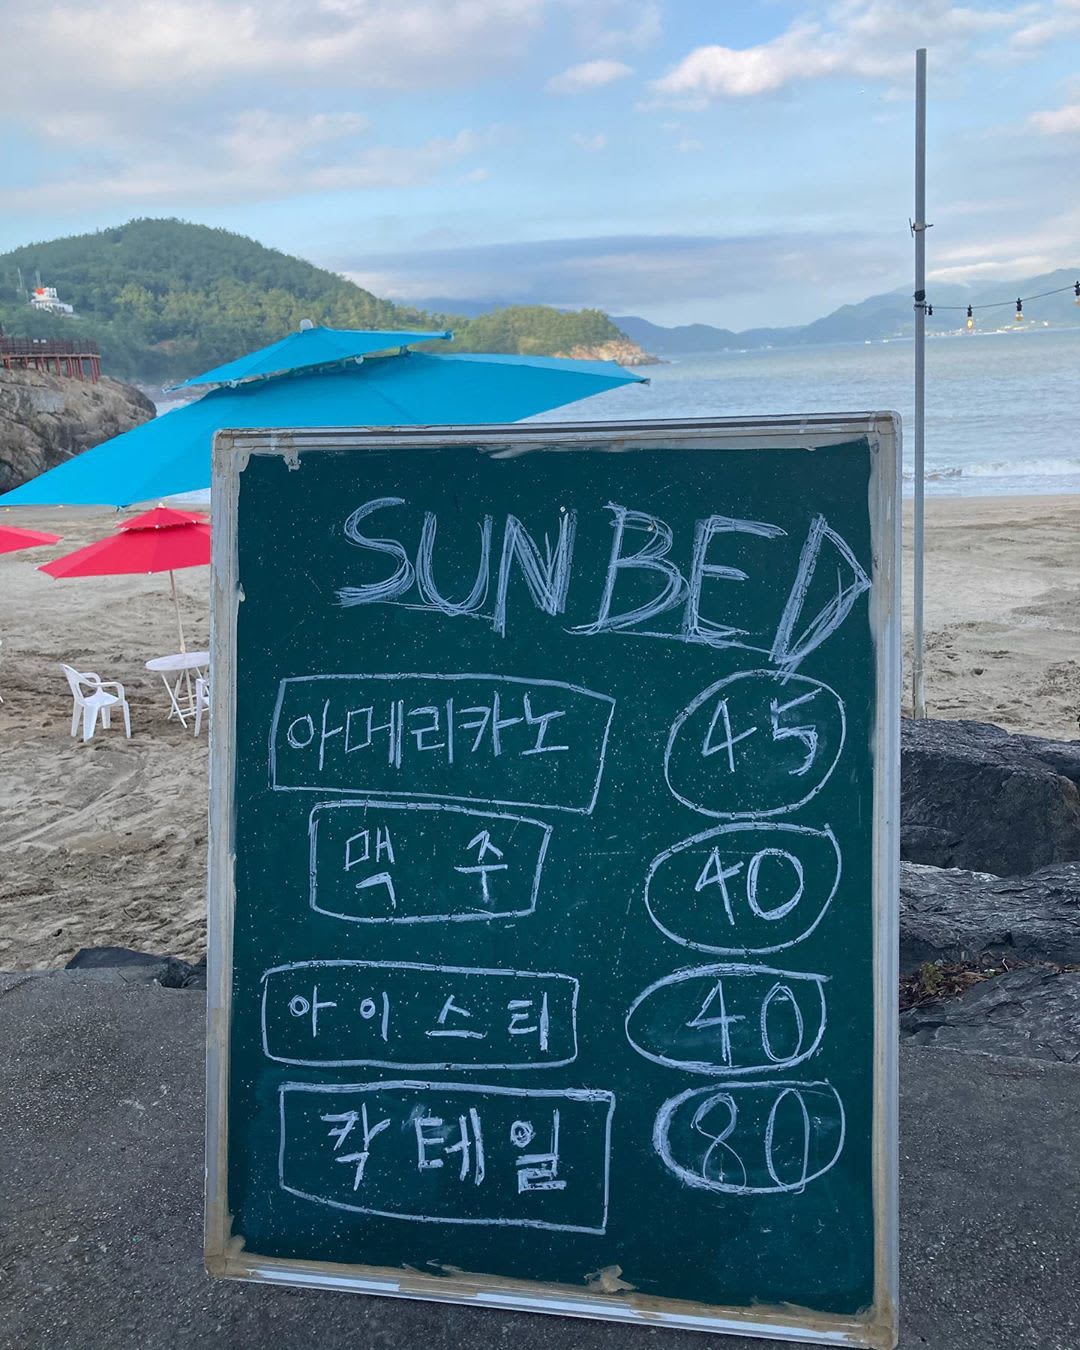 SUN BED
아메리카노 45
맥주 40
아이스티 40
칵테일 80